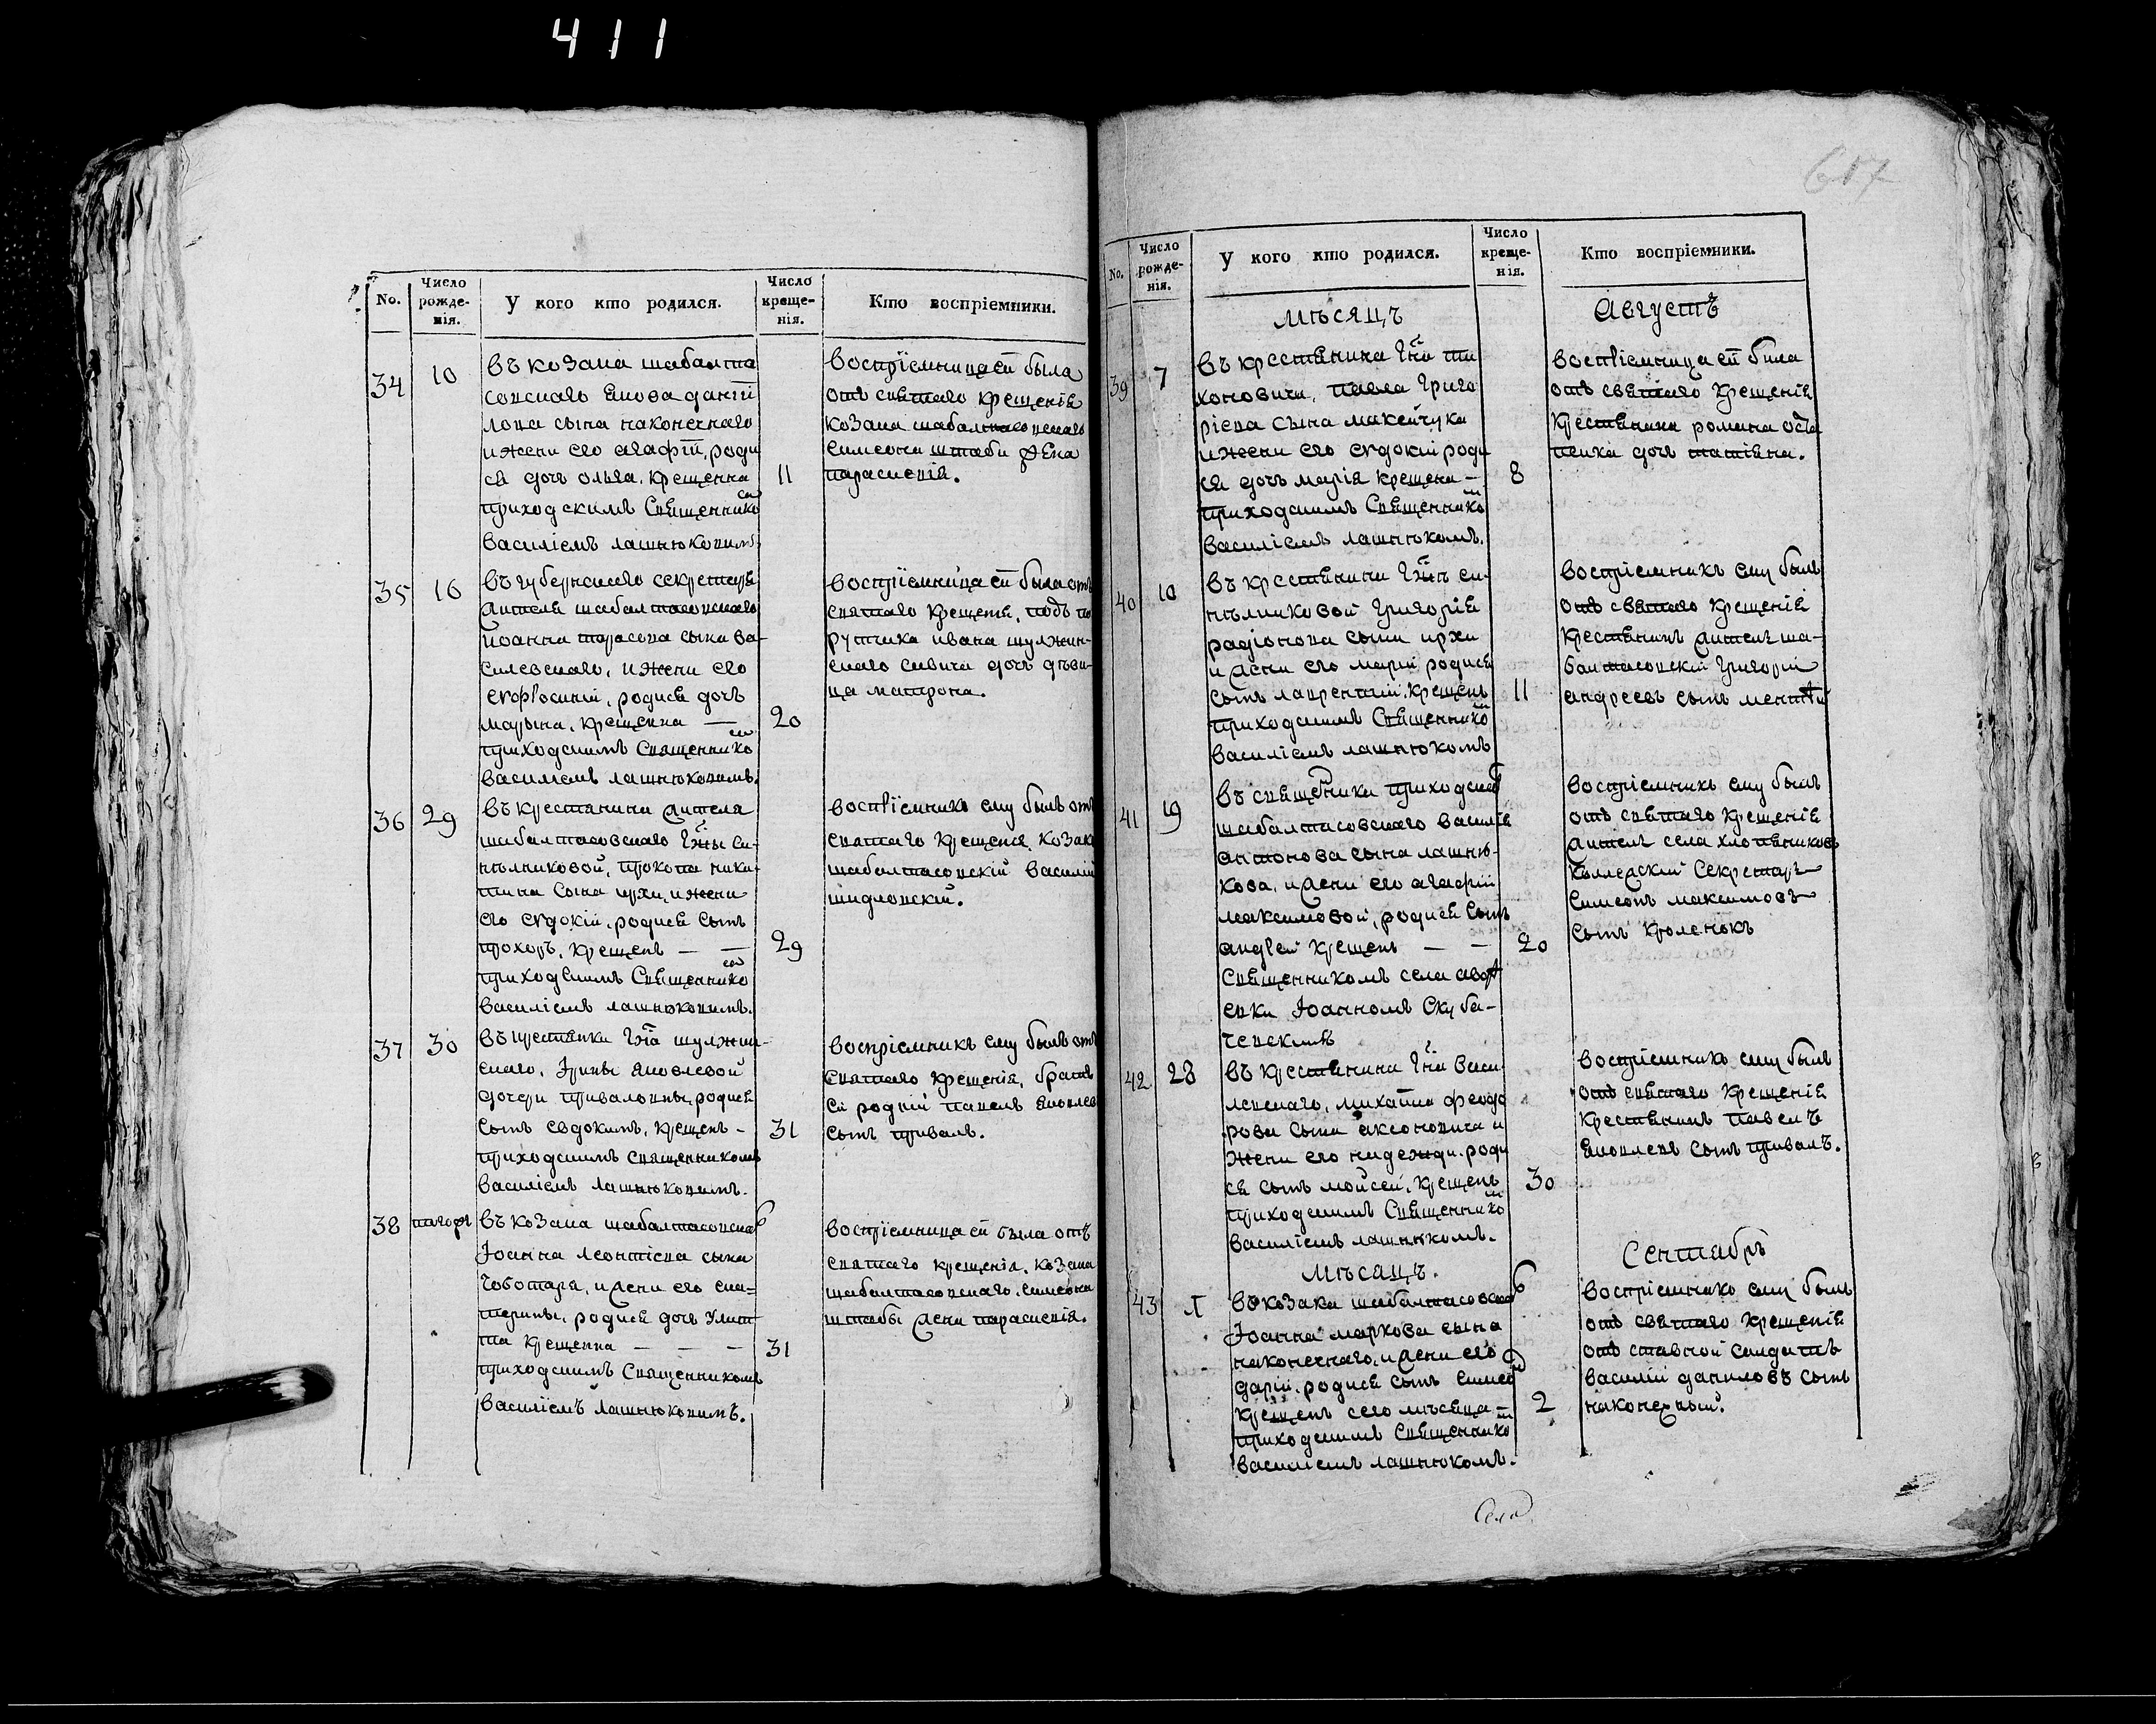 411
617
No.
Число рожде-нія.
У кого кто родился.
Число креще-нія.
Кто воспріемники.
34
10
въ козака шабалта
совскаго Якова даніи
лова сына наконечнаго
и жени его агафіи, роди
ся дочь ольга, Крещенна
приходскимъ Священнико
василіемъ лашнюковимъ.
11
воспріемница ей была
отъ святаго крещенія
козака шабалтасовскаго
симеона штаби жена
параскевія.
35
16
въ губернскаго секретаря
жителя шабалтасовскаго
иоанна тарасова сына ва-
силевскаго, и жени его
евфросиніи, родися дочь
марына, крещенна —
приходскимъ Священнико
василіемъ лашнюковимъ.
20
воспріемница ей была отъ
святаго крещенія, подъ по
рутчика ивана шулжин-
скаго савича дочь дѣви-
ца матрона.
36
29
въ крестянина жителя
шабалтасовскаго
прокопа ники-
тина сына ирхи, и жени
его евдокіи, родися сынъ
прохоръ, крещенъ — —
приходскимъ Священнико
василіемъ лашнюковимъ.
29
воспріемникъ ему былъ отъ
святаго крещенія, козакъ
шабалтасовскій василій
шидловскій.
37
30
въ крестянки шулжин-
скаго, Ирины Яковлевой
дочери приваловны, родися
сынъ евдокимъ, крещенъ -
приходскимъ священникомъ
василіемъ лашнюковимъ.
31
воспріемникъ ему былъ отъ
святаго крещенія, братъ
ея родній павелъ яковлевъ
сынъ привалъ.
38
въ козака шабалтасовскаго
Іоанна Леонтіева сына
чоботаря, и жени его ека=
терины, родися дочь Улит
та крещенна — — —
приходскимъ Священникомъ
василіемъ лашнюковимъ.
31
воспріемница ей была отъ
святаго крещенія, козака
шабалтасовскаго, симеона
штабы жена параскевія.
No.
Число рожде-нія.
У кого кто родился.
Число креще-нія.
Кто воспріемники.
мѣсяцъ
Августъ
39
7
въ крестянина ти
хоновича, павла григо
ріева сына макейчука
и жени его евдокіи роди
ся дочь марія крещена —
приходскимъ Священнико
василіемъ лашнюкомъ.
8
воспріемница ей была
отъ святаго крещенія
крестянина романа оста
пенка дочь татіана.
40
10
въ крестянина си-
нѣлниковой григорія
радіонова сына ирхи
и жени его маріи родися
сынъ лаврентій, крещенъ
приходскимъ Священнико
василіемъ лашнюкомъ
11
воспріемникъ ему былъ
отъ святаго крещенія
крестянинъ жителъ ша-
балтасовскій григорій
андреевъ сынъ
41
19
въ священника приходскаго
шабалтасовскаго василія
антонова сына лашню-
кова, и жени его агафіи
максимовой, родися сынъ
андрей крещенъ — —
Священникомъ села
Іоанномъ Скуба-
чевскимъ
20
воспріемникъ ему былъ
отъ святаго крещенія
житель села хлопяниковъ
коллежскій секретарь
симеонъ максимовъ
сынъ кроленокъ
42
28
въ крестянина васи
левскаго, михаила феодо
рова сына аксоновича и
жени его надежди, роди
ся сынъ мойсей, крещенъ
приходскимъ Священнико
василіемъ лашнюкомъ.
30
воспріемникъ ему былъ
отъ святаго крещенія
крестянинъ павелъ
яковлевъ сынъ привалъ.
мѣсяцъ.
Сентябрь
43
въ козака шабалтасовскаго
Іоанна маркова сына
наконечнаго, и жени его
даріи, родися сынъ симео
крещенъ сего мѣсяца —
приходскимъ Священнико
василіемъ лашнюкомъ.
2
воспріемникъ ему былъ
отъ святаго крещенія
отъ ставной салдатъ
василій даниловъ сынъ
наконечный.
Село